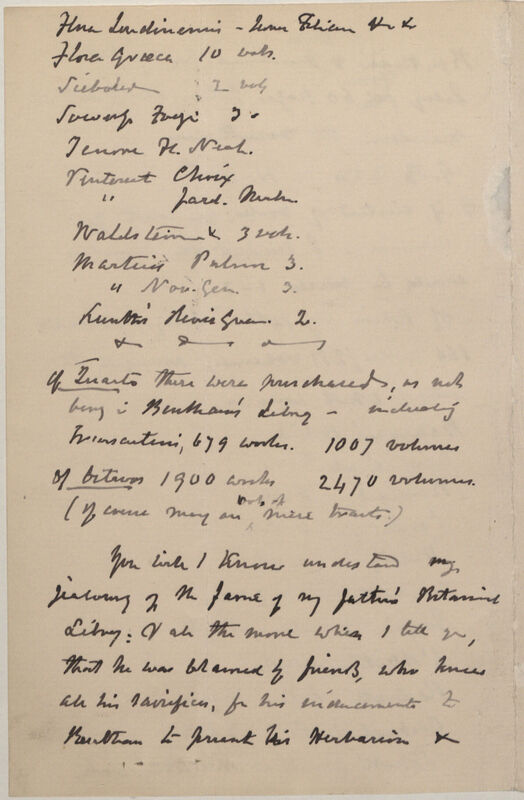 Flora Londinensis –
Flora Graeca 10 vols.
Siebold 2 vols
Sowerby Fungi 3 .
Tenore Fl. Neap.
Ventenat Choix
" Jard. Malm.
Waldstein & 3 vols.
Martius Palm 3.
" Nov. Gen. 3.
Kunth's Gram. 2.
Of Quarto there were purchased, as not
being in Bentham's Library – including
Transactions, 679 works. 1007 volumes
Of Octavos 1900 works 2470 volumes.
(Of course many are mere tracts.)
You will I know understand my
jealousy of the fame of my father's Botanical
Library: & all the more when I tell you,
that he was blamed by friends, who knew
all his sacrifices, for his inducements to
Bentham to present his Herbarium &